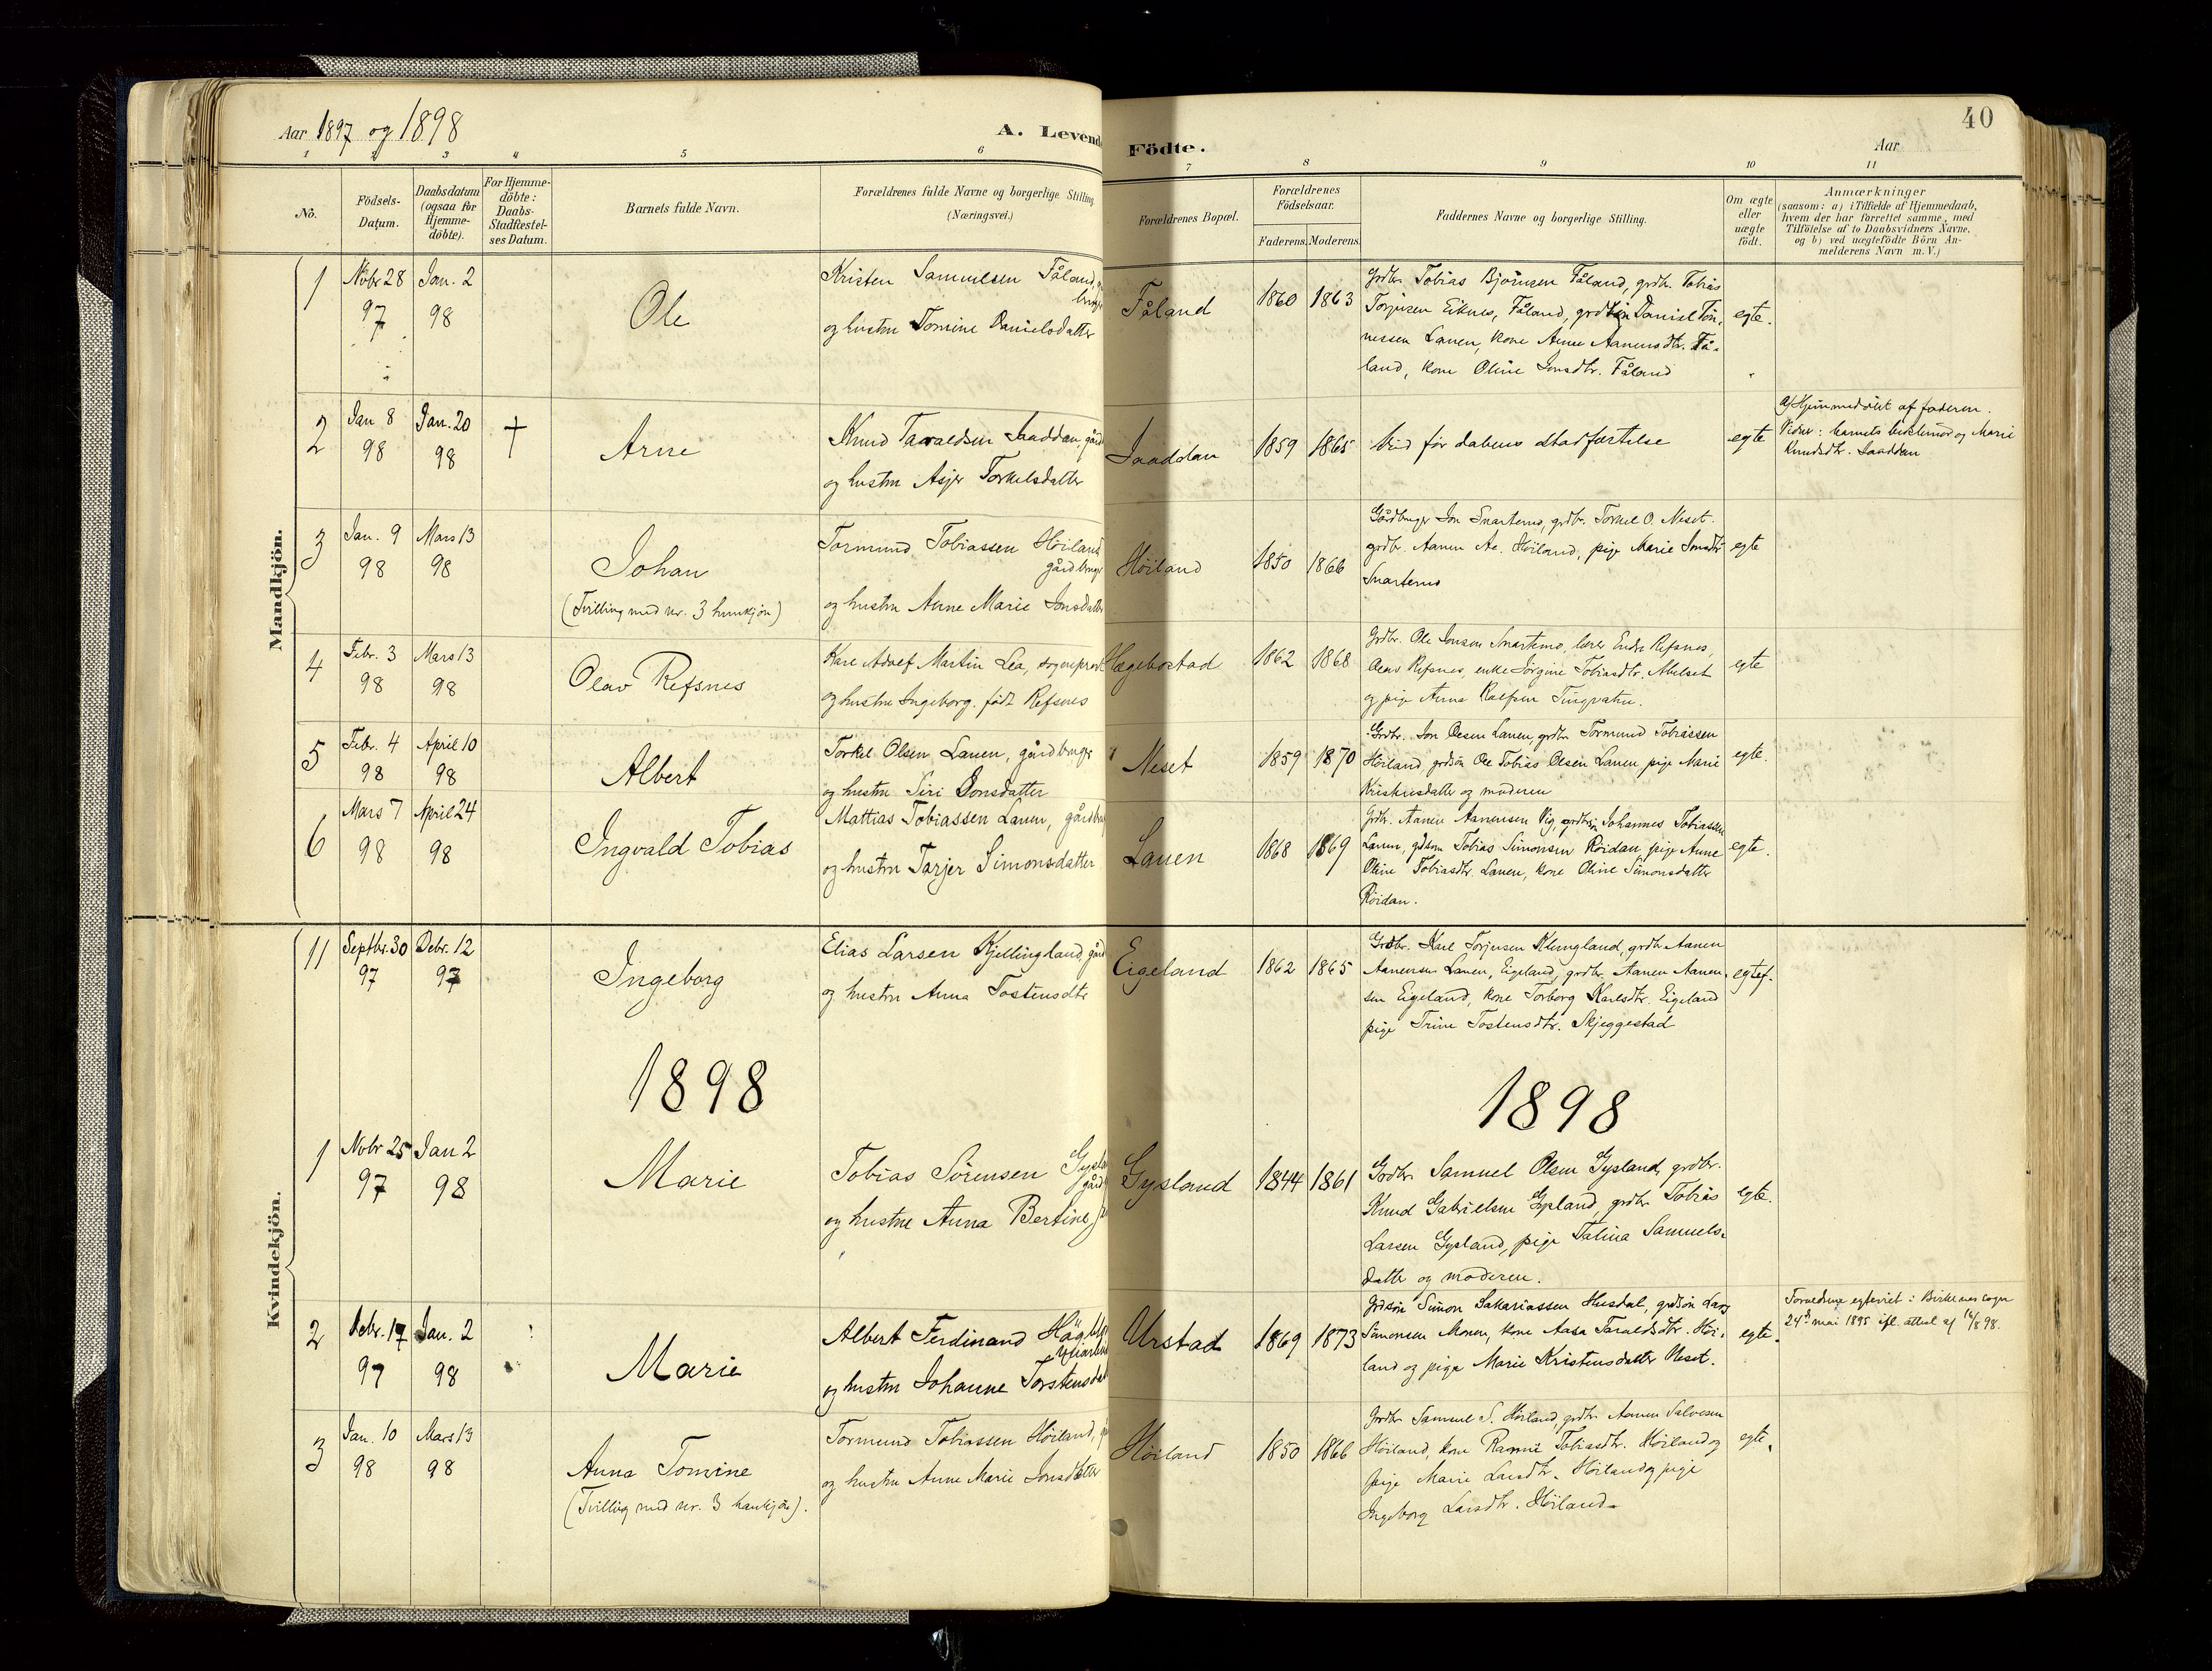 Aar 1897 og 1898
A. Levend
Födte.
Aar
40
1 2 3 4 5 6 7 8 9 10 11
No.
Födsels-
Datum.
Daabsdatum
(ogsaa for
Hjemme-
döbte).
For Hjemme-
döbte:
Daabs-
Stadfæstel-
ses Datum.
Barnets fulde Navn.
Forældrenes fulde Navne og borgerlige Stilling.
(Næringsvei.)
Forældrenes Bopæl.
Forældrenes
Födselsaar.
Faderens. Moderens.
Faddernes Navne og borgerlige Stilling.
Om ægte
eller
uægte
födt.
Anmærkninger
(saasom: a) i Tilfælde af Hjemmedaab,
hvem der har forrettet samme, med
Tilföielse af to Daabsvidners Navne,
og b) ved uægtefödte Börn An-
melderens Navn m. V.)
Mandkjön.
1
Nobr 28
97
Jan. 2
98
Ole
Kristen Samuelsen Fåland,
og hustru Tomine Danielsdatter
Fåland
1860 1863
Grdbr. Tobias Bjørnsen Fåland, grdbr. Tobias
Torjusen Eiknes, Fåland, Daniel Tøn-
nessen Lauen, kone Anne Aanensdtr. Få-
land, kone Oline Jonsdtr. Fåland
egte.
2
Jan 8
98
Jan. 20
98
†
Arne
Knud Taraldsen Saaddan, gård
og hustru Asjer Torkelsdatter
Saaddan
1859 1865
død før dabens stadfæstelse
egte
Hjemmedøbt af faderen.
Vidner: barnets bestemor og Marie
Knudsdtr. Saaddan
3
Jan. 9
98
Mars 13
98
Johan
(Tvilling med nr. 3 hunkjøn)
Tormund Tobiassen Høiland
gårdbruge
og hustru Anne Marie Jonsdatter
Høiland
1850 1866
Gårdbruger Jon Snartemo, grdbr. Torkel O. Neset.
grdbr. Aanen Aa. Høiland, pige Marie Jonsdtr
Snartemo
egte
4
Febr. 3
98
Mars 13
98
Olav Refsnes
Kare Adolf Martin Lea, sogneprest
og hustru Ingeborg. født Refsnes
Hægebostad
1862 1868
Grdbr. Ole Jonsen Snartemo, lærer Endre Refsnes,
Olav Refsnes, enke Jørgine Tobiasdtr. Abelset
og pige Anna Rolfsen Tingvatn.
egte
5
Febr. 4
98
April 10
98
Albert
Torkel Olsen Lauen, gårdbruger
og hustru Siri Jonsdatter
Neset
1859 1870
Grdbr. Jon Olesen Lauen, grdbr. Tormund Tobiassen
Høiland, grdsøn Ole Tobias Olsen Lauen, pige Marie
Kristensdatter og moderen
egte.
6
Mars 7
98
April 24
98
Ingvald Tobias
Mattias Tobiassen Lauen, gårdbru
og hustru Tarjer Simonsdatter
Lauen
1868 1869
Grdbr. Aanen Aanensen Vig, grdbr. Johannes Tobiassen
Lauen, gdsøn Tobias Simonsen Røidan, pige Anne
Oline Tobiasdtr. Lauen, kone Oline Simonsdatter
Røidan.
egte.
Kvindekjön.
11
Septbr. 30
97
Debr. 12
97
Ingeborg
Elias Larsen Kjellingland, gård
og hustru Anna Tostensdtr
Eigeland
1862 1865
Grdbr. Karl Torjusen Klungland, grdbr. Aanen
Aanensen Lauen, Eigeland, grdbr. Aanen Aanen-
sen Eigeland, kone Torborg Karlsdtr. Eigeland
pige Trine Tostensdtr. Skjeggestad
egtef.
1898
1898
1
Nobr 25
97
Jan 2
98
Marie
Tobias Sørensen Gysla
gård
og hustru Anna Bertine
Gysland
1844 1861
Grdbr. Samuel Olsen Gysland, grdbr.
Knud Gabrielsen Gysland, grdbr. Tobias
Larsen Gysland, pige Talina Samuels-
datter og moderen.
egte.
2
Debr. 17
97
Jan. 2
98
Marie
Albert Ferdinand
og hustru Johanne Torstensdat
Urstad
1869 1873
Grdsøn Simon Sakariassen Husdal, grdsøn Lars
Simonsen Monen, kone Aasa Taraldsdtr. Høi-
land og pige Marie Kristensdatter Neset.
egte.
Foreldrene egteviet i Birkenes sogn
24de mai 1895 ifl. attest af
3
Jan. 10
98
Mars 13
98
Anna Tomine
(Tvilling med nr. 3 hankjøn).
Tormund Tobiassen Høiland,
og hustru Anne Marie Jonsdatter
Høiland
1850 1866
Grdbr Samuel S. Høiland, grdbr. Aanen Salvesen
Høiland, kone Rannei Tobiasdtr. Høiland og
pige Marie Larsdtr. Høiland og pige
Ingeborg Larsdtr. Høiland
egte.